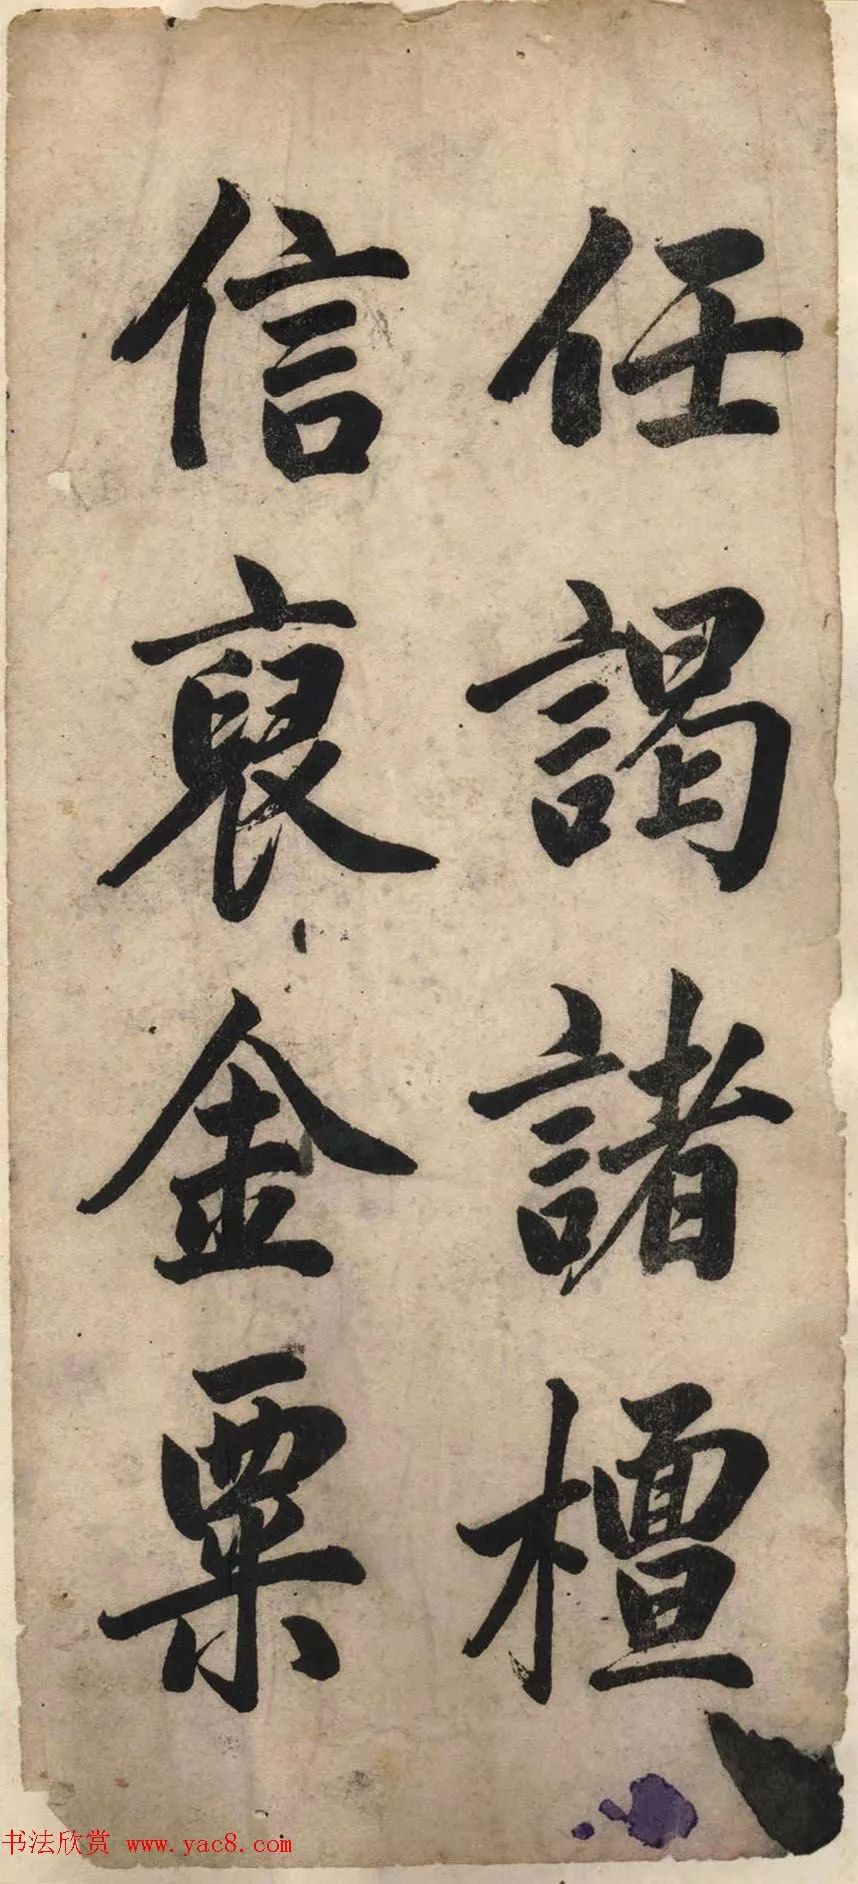 任謁諸檀
信裒金粟
书法欣赏 www.yac8.com